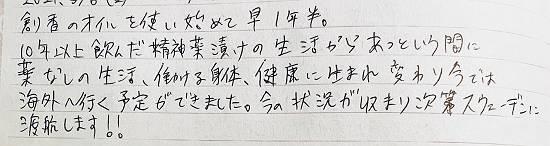 創香のオイルを使い始めて早1年半。
10年以上飲んだ精神薬漬けの生活からあっという間に
薬なしの生活、働ける身体、健康に生まれ変わり今では
海外へ行く予定ができました。今の状況が収まり次第スウェーデンに
渡航します!!